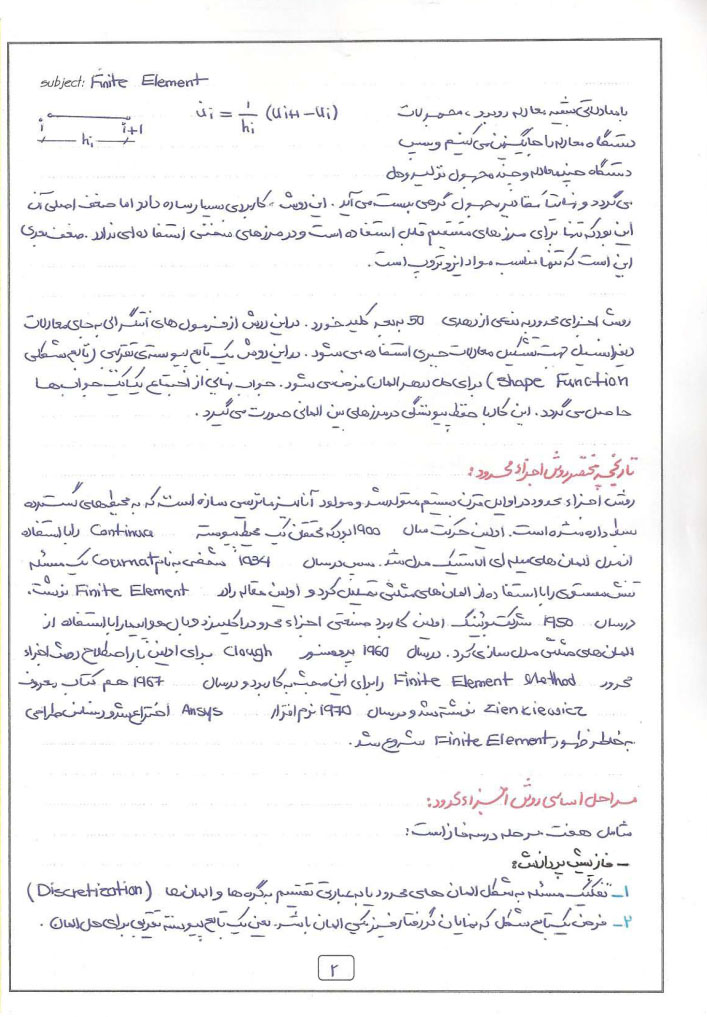 subject: Finite Element
با معادلاتی شبیه معادله روبرو، مجهولات
u̇i = 1/hi (ui+1 − ui)
i i+1
hi
دستگاه معادله را جایگزین می کنیم و سپس
دستگاه چند معادله و چند مجهول تولید و حل
می گردد و نهایتاً مقادیر مجهول گرهی بدست می آید. این روش، کاربردی بسیار ساده دارد اما ضعف اصلی آن
این بود که تنها برای مرزهای مستقیم قابل استفاده است و در مرزهای منحنی استفاده ای ندارد. ضعف بعدی
این است که تنها مناسب مواد ایزوتروپ است.
روش اجزای محدود به نوعی از دهه ی 50 به بعد کلید خورد. در این روش از فرمول های انتگرالی به جای معادلات
دیفرانسیل جهت تشکیل معادلات جبری استفاده می شود. در این روش یک تابع پیوسته ی تقریبی (تابع شکلی
shape Function) برای حل در هر المان فرض می شود. جواب نهایی از اجتماع یکایک جواب ها
حاصل می گردد. این کار با حفظ پیوستگی در مرزهای بین المانی صورت می گیرد.
تاریخچه مختصر روش اجزاء محدود:
روش اجزاء محدود در اوایل قرن بیستم متولد شد و مولود آنالیز ماتریسی سازه است که به محیط های گسترده
بسط داده شده است. اولین حرکت سال 1900 بود که محققی یک محیط پیوسته Continua را با استفاده
از مدل المان های میله ای الاستیک مدل شد. سپس در سال 1934 شخصی به نام Cournat یک مسئله
تنش مستوی را با استفاده از المان های مثلثی تحلیل کرد و اولین مقاله را در Finite Element نوشت.
در سال 1950 شرکت بوئینگ اولین کاربرد صنعتی اجزاء محدود را کلید زد و بال هواپیما را با استفاده از
المان های مثلثی مدل سازی کرد. در سال 1960 پروفسور Clough برای اولین بار اصطلاح روش اجزاء
محدود Finite Element Method را برای این مبحث به کار برد و در سال 1967 هم کتاب معروف
Zienkiewicz نوشته شد و در سال 1970 نرم افزار Ansys اختراع شد و طراحی
به خاطر ظهور Finite Element شروع شد.
مراحل اساسی روش اجزاء محدود:
شامل هفت مرحله در سه فاز است:
- فاز پیش پردازش:
۱- تفکیک مسئله به شکل المان های محدود یا به عبارتی تقسیم به گره ها و المان ها (Discretization)
۲- فرض یک تابع شکل که نمایان گر رفتار فیزیکی المان باشد. یعنی یک تابع پیوسته تقریبی برای حل المان.
۲